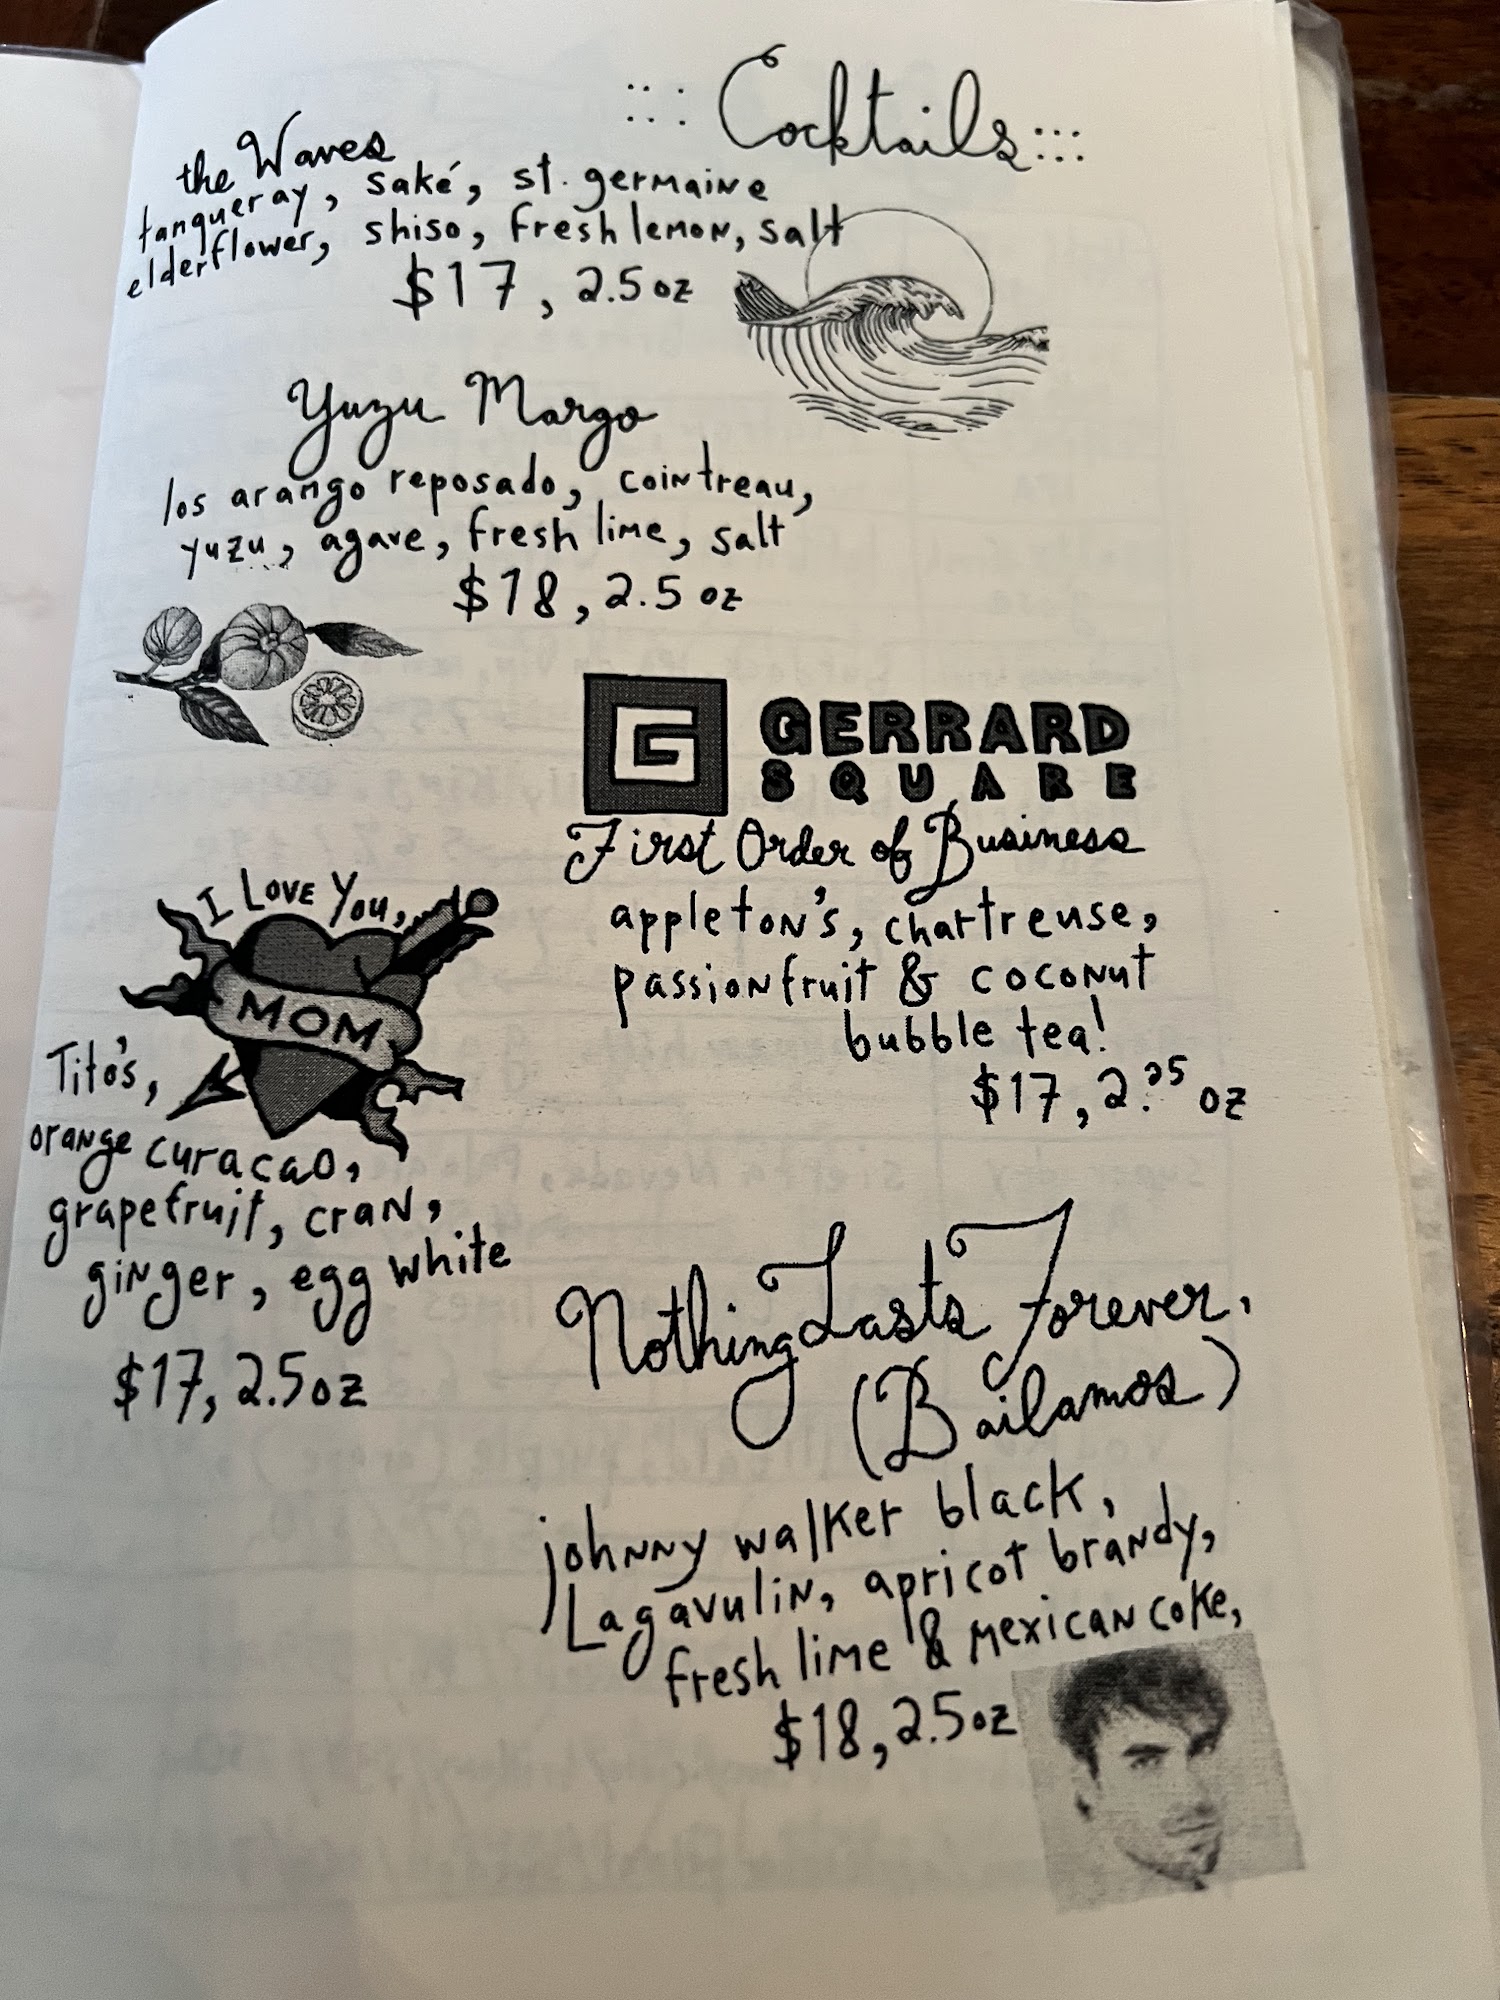 Cocktails
the Waves
tanqueray, saké, st. germaine
elderflower, shiso, fresh lemon, salt
$17, 2.5 oz
Yuzu Margo
los arango reposado, cointreau,
yuzu, agave, fresh lime, salt
$18, 2.5 oz
G GERRARD
SQUARE
First Order of Business
appleton's, chartreuse,
passionfruit & coconut
bubble tea!
$17, 2.25 oz
I LOVE YOU,
MOM
Tito's,
orange curacao,
grapefruit, cran,
ginger, egg white
$17, 2.5oz
Nothing Lasts Forever,
(Bailamos)
johnny walker black,
Lagavulin, apricot brandy,
fresh lime & mexican coke,
$18, 2.5oz